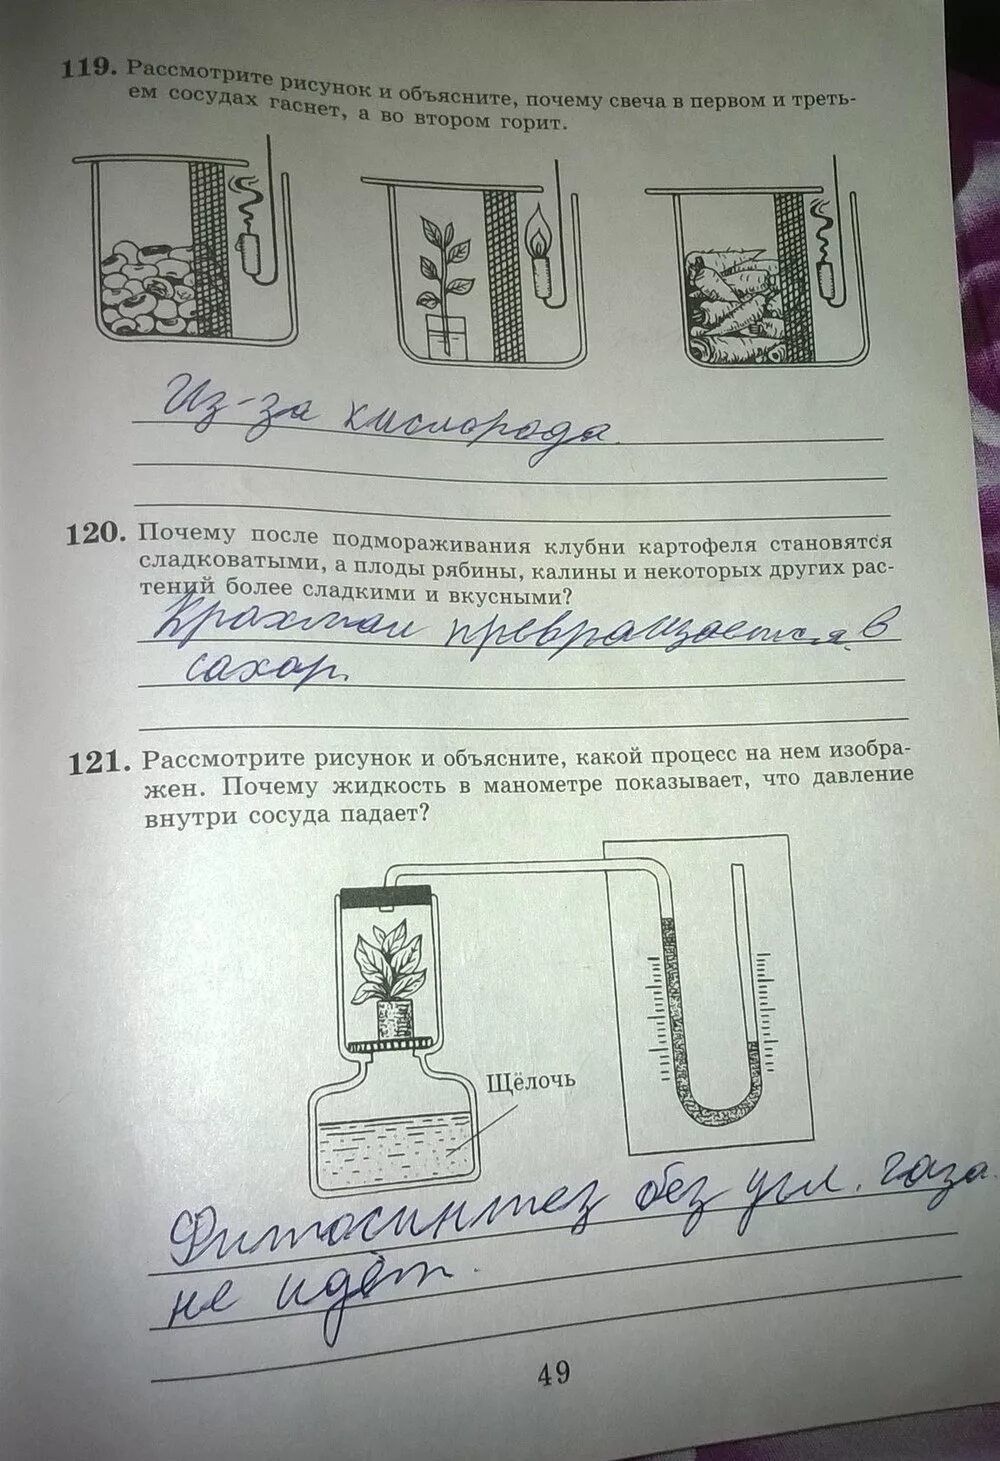 119. Рассмотрите рисунок и объясните, почему свеча в первом и треть-
ем сосудах гаснет, а во втором горит.
Из-за кислорода.
120. Почему после подмораживания клубни картофеля становятся
сладковатыми, а плоды рябины, калины и некоторых других рас-
тений более сладкими и вкусными?
Крахмал превращается в
сахар.
121. Рассмотрите рисунок и объясните, какой процесс на нем изобра-
жен. Почему жидкость в манометре показывает, что давление
внутри сосуда падает?
Щёлочь
Фитосинтез без угл. газа
не идёт.
49